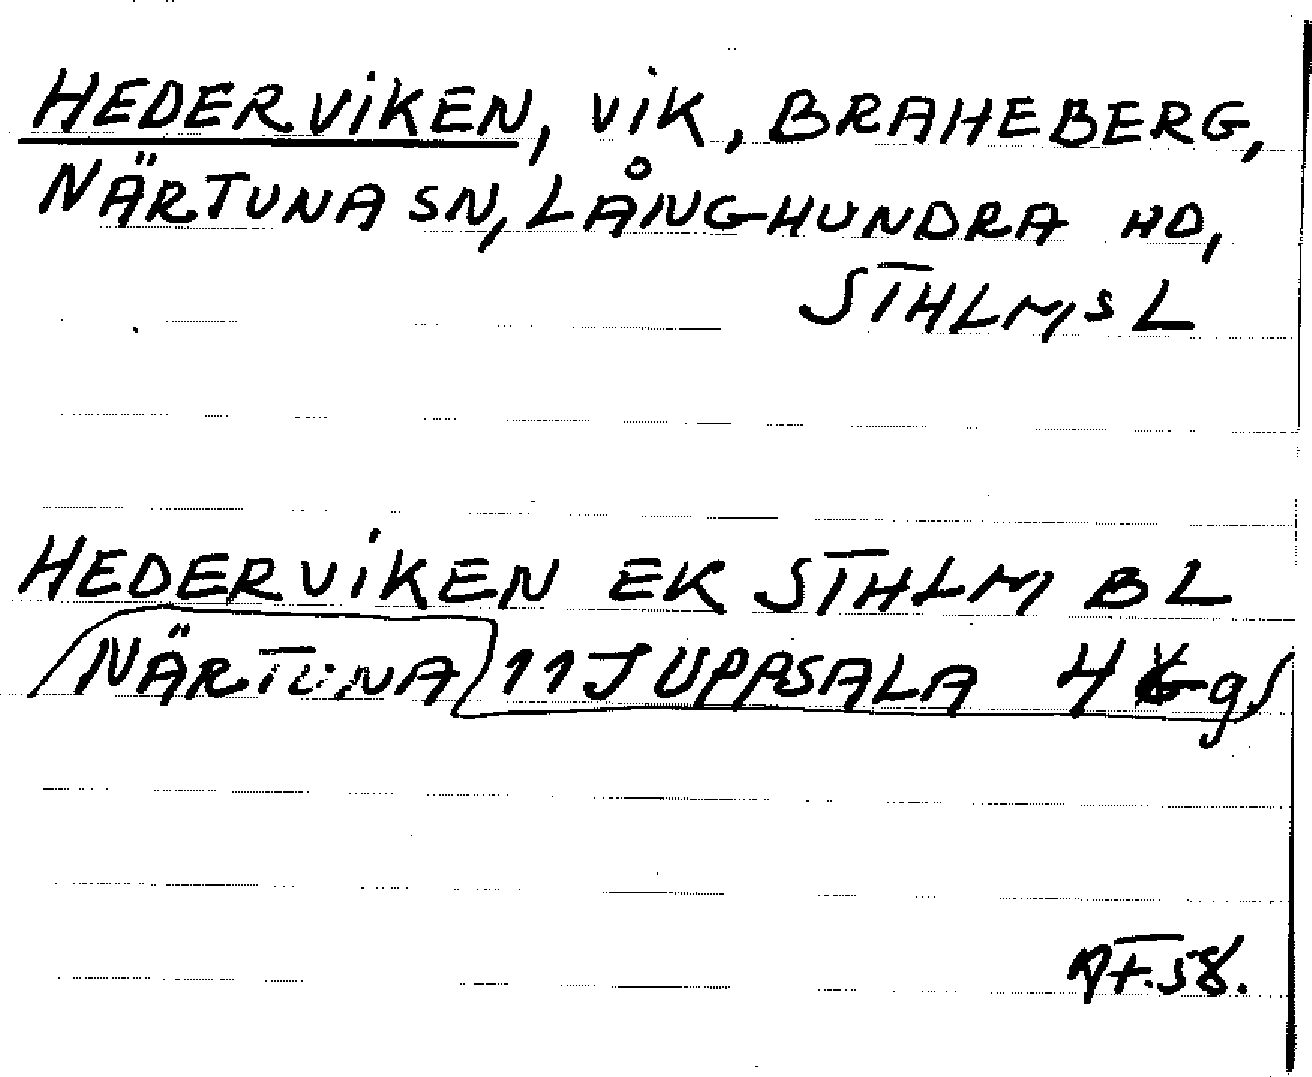 HEDERVIKEN, VIK, BRAHEBERG,
NÄRTUNA SN, LÅNGHUNDRA HD,
STHLMS L
HEDERVIKEN EK STHLM BL
NÄRTUNA 11J UPPSALA 4 g
58.